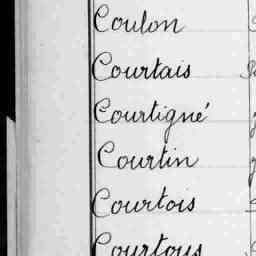 Coulon
Courtais
Courtigné
Courtin
Courtois
Courtous